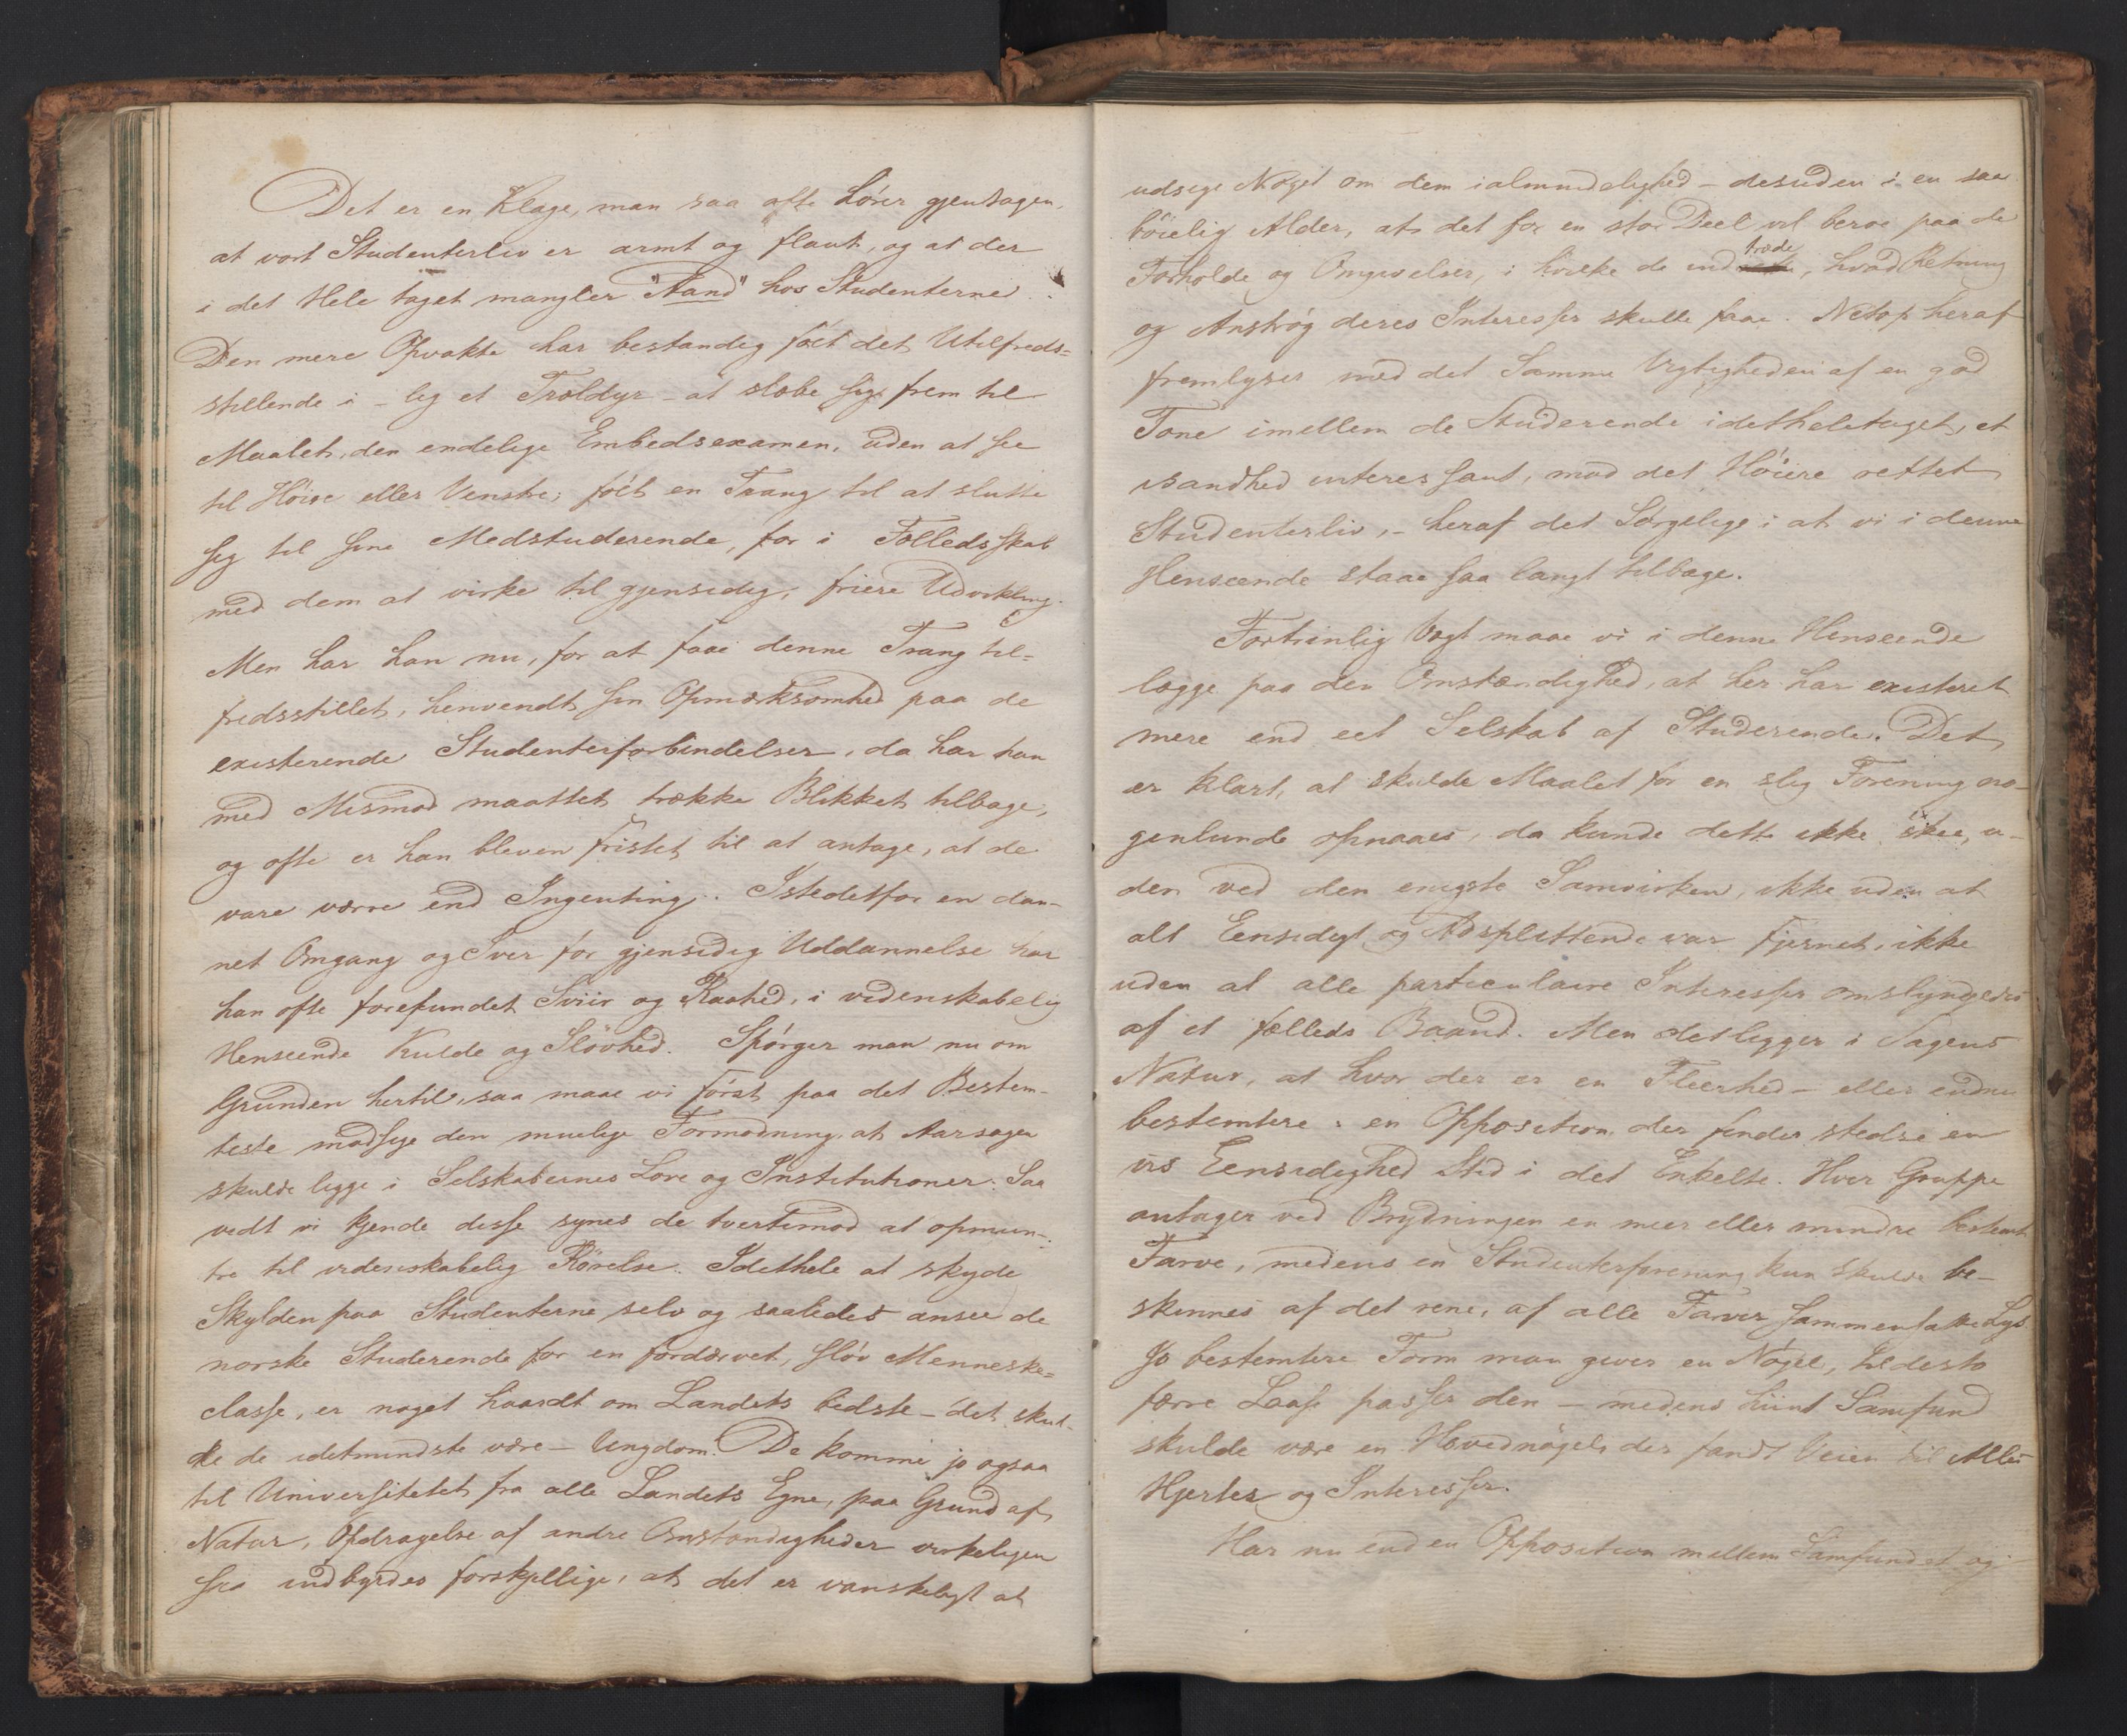 Det er en Klage, man saa ofte hører gjentagen,
at vort Studenterliv er armt og flaut, og at der
i det Hele taget mangler "Aand" hos Studenterne.
Den mere Opvakte har bestandig følt det Utilfreds=
stillende i - lig et Trældyr - at slæbe sig frem til
Maalet, den endelige Embedsexamen, uden at see
til Høire eller Venstre; følt en Trang til at slutte
sig til sine Medstuderende, for i Fælledsskab
med dem at virke til gjensidig, friere Udvikling.
Men har han nu, for at faae denne Trang til=
fredsstillet, henvendt sin Opmærksomhed paa de
existerende Studenterforbindelser, da har han
med Mismod maattet trække Blikket tilbage,
og ofte er han bleven fristet til at antage, at de
vare værre end Ingenting. Istedetfor en dan-
net Omgang og Iver for gjensidig Uddannelse har
han ofte forefundet Sviir og Raahed, i videnskabelig
Henseende Kulde og Sløvhed. Spørger man nu om
Grunden hertil, saa maae vi først paa det Bestem-
teste modsige den muelige Formodning, at Aarsagen
skulde ligge i Selskabernes Love og Institutioner. Saa
vidt vi kjende disse synes de tvertimod at opmun-
tre til videnskabelig Rørelse. Idethele at skyde
Skylden paa Studenterne selv og saaledes ansee de
norske Studerende for en fordærvet, sløv Menneske=
classe, er noget haardt om Landets bedste - det skul-
de de idetmindste være - Ungdom. De komme jo ogsaa
til Universitetet fra alle Landets Egne, paa Grund af
Natur, Opdragelse af andre Omstændigheder virkeligen
saa indbyrdes forskjellige, at det er vanskeligt at
udsige Noget om dem ialmindelighed - desuden i en saa
bøielig Alder, at det for en stor Deel vil beroe paa de
Forholde og Omgivelser, i hvilke de indtræde, hvad Retning
og Anstrøg deres Interesser skulle faae. Netop heraf
fremlyser med det Samme Vigtigheden af en god
Tone imellem de Studerende idetheletaget, et
isandhed interessant, mod det Høiere rettet
Studenterliv, - heraf det Sørgelige i at vi i denne
Henseende staae saa langt tilbage.
Fortrinlig Vægt maae vi i denne Henseende
lægge paa den Omstændighed, at her har existeret
mere end eet Selskab af Studerende. Det
er klart, at skulde Maalet for en slig Forening no-
genlunde opnaaes, da kunde dette ikke skee, u-
den ved den enigste Samvirken, ikke uden at
alt Eensidigt og Adsplittende var fjernet, ikke
uden at alle particulaire Interesser omslyngedes
af et fælleds Baand. Men det ligger i Sagens
Natur, at hvor der er en Fleerhed - eller endnu
bestemtere: en Opposition, der finder stedse en
vis Eensidighed Sted i det Enkelte. Hver Gruppe
antager ved Brydningen en meer eller mindre bestemt
Farve, medens en Studenterforening kun skulde be-
skinnes af det rene, af alle Farver sammensatte Lys.
Jo bestemtere Form man giver en Nøgel, til desto
færre Laase passer den - medens hiint Samfund
skulde være en Hovednøgel, der fandt Veien til Alles
Hjerter og Interesser.
Har nu end en Opposition mellem Samfundet og